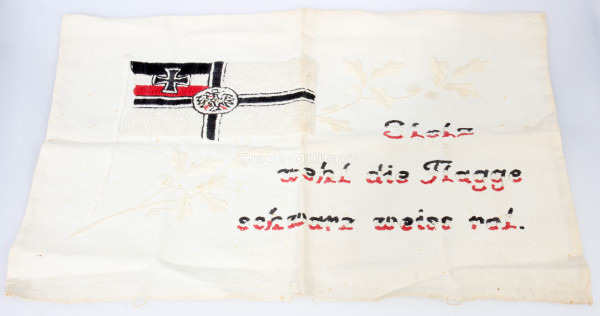 Stolz
weht die Flagge
schwarz weiss rot.